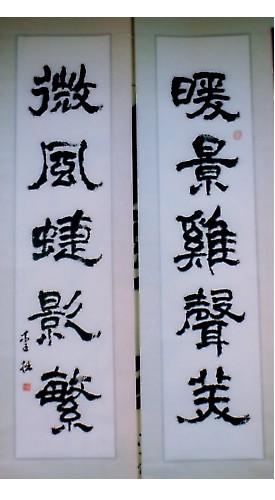 暖景雞聲美
微風蜨影繁
李